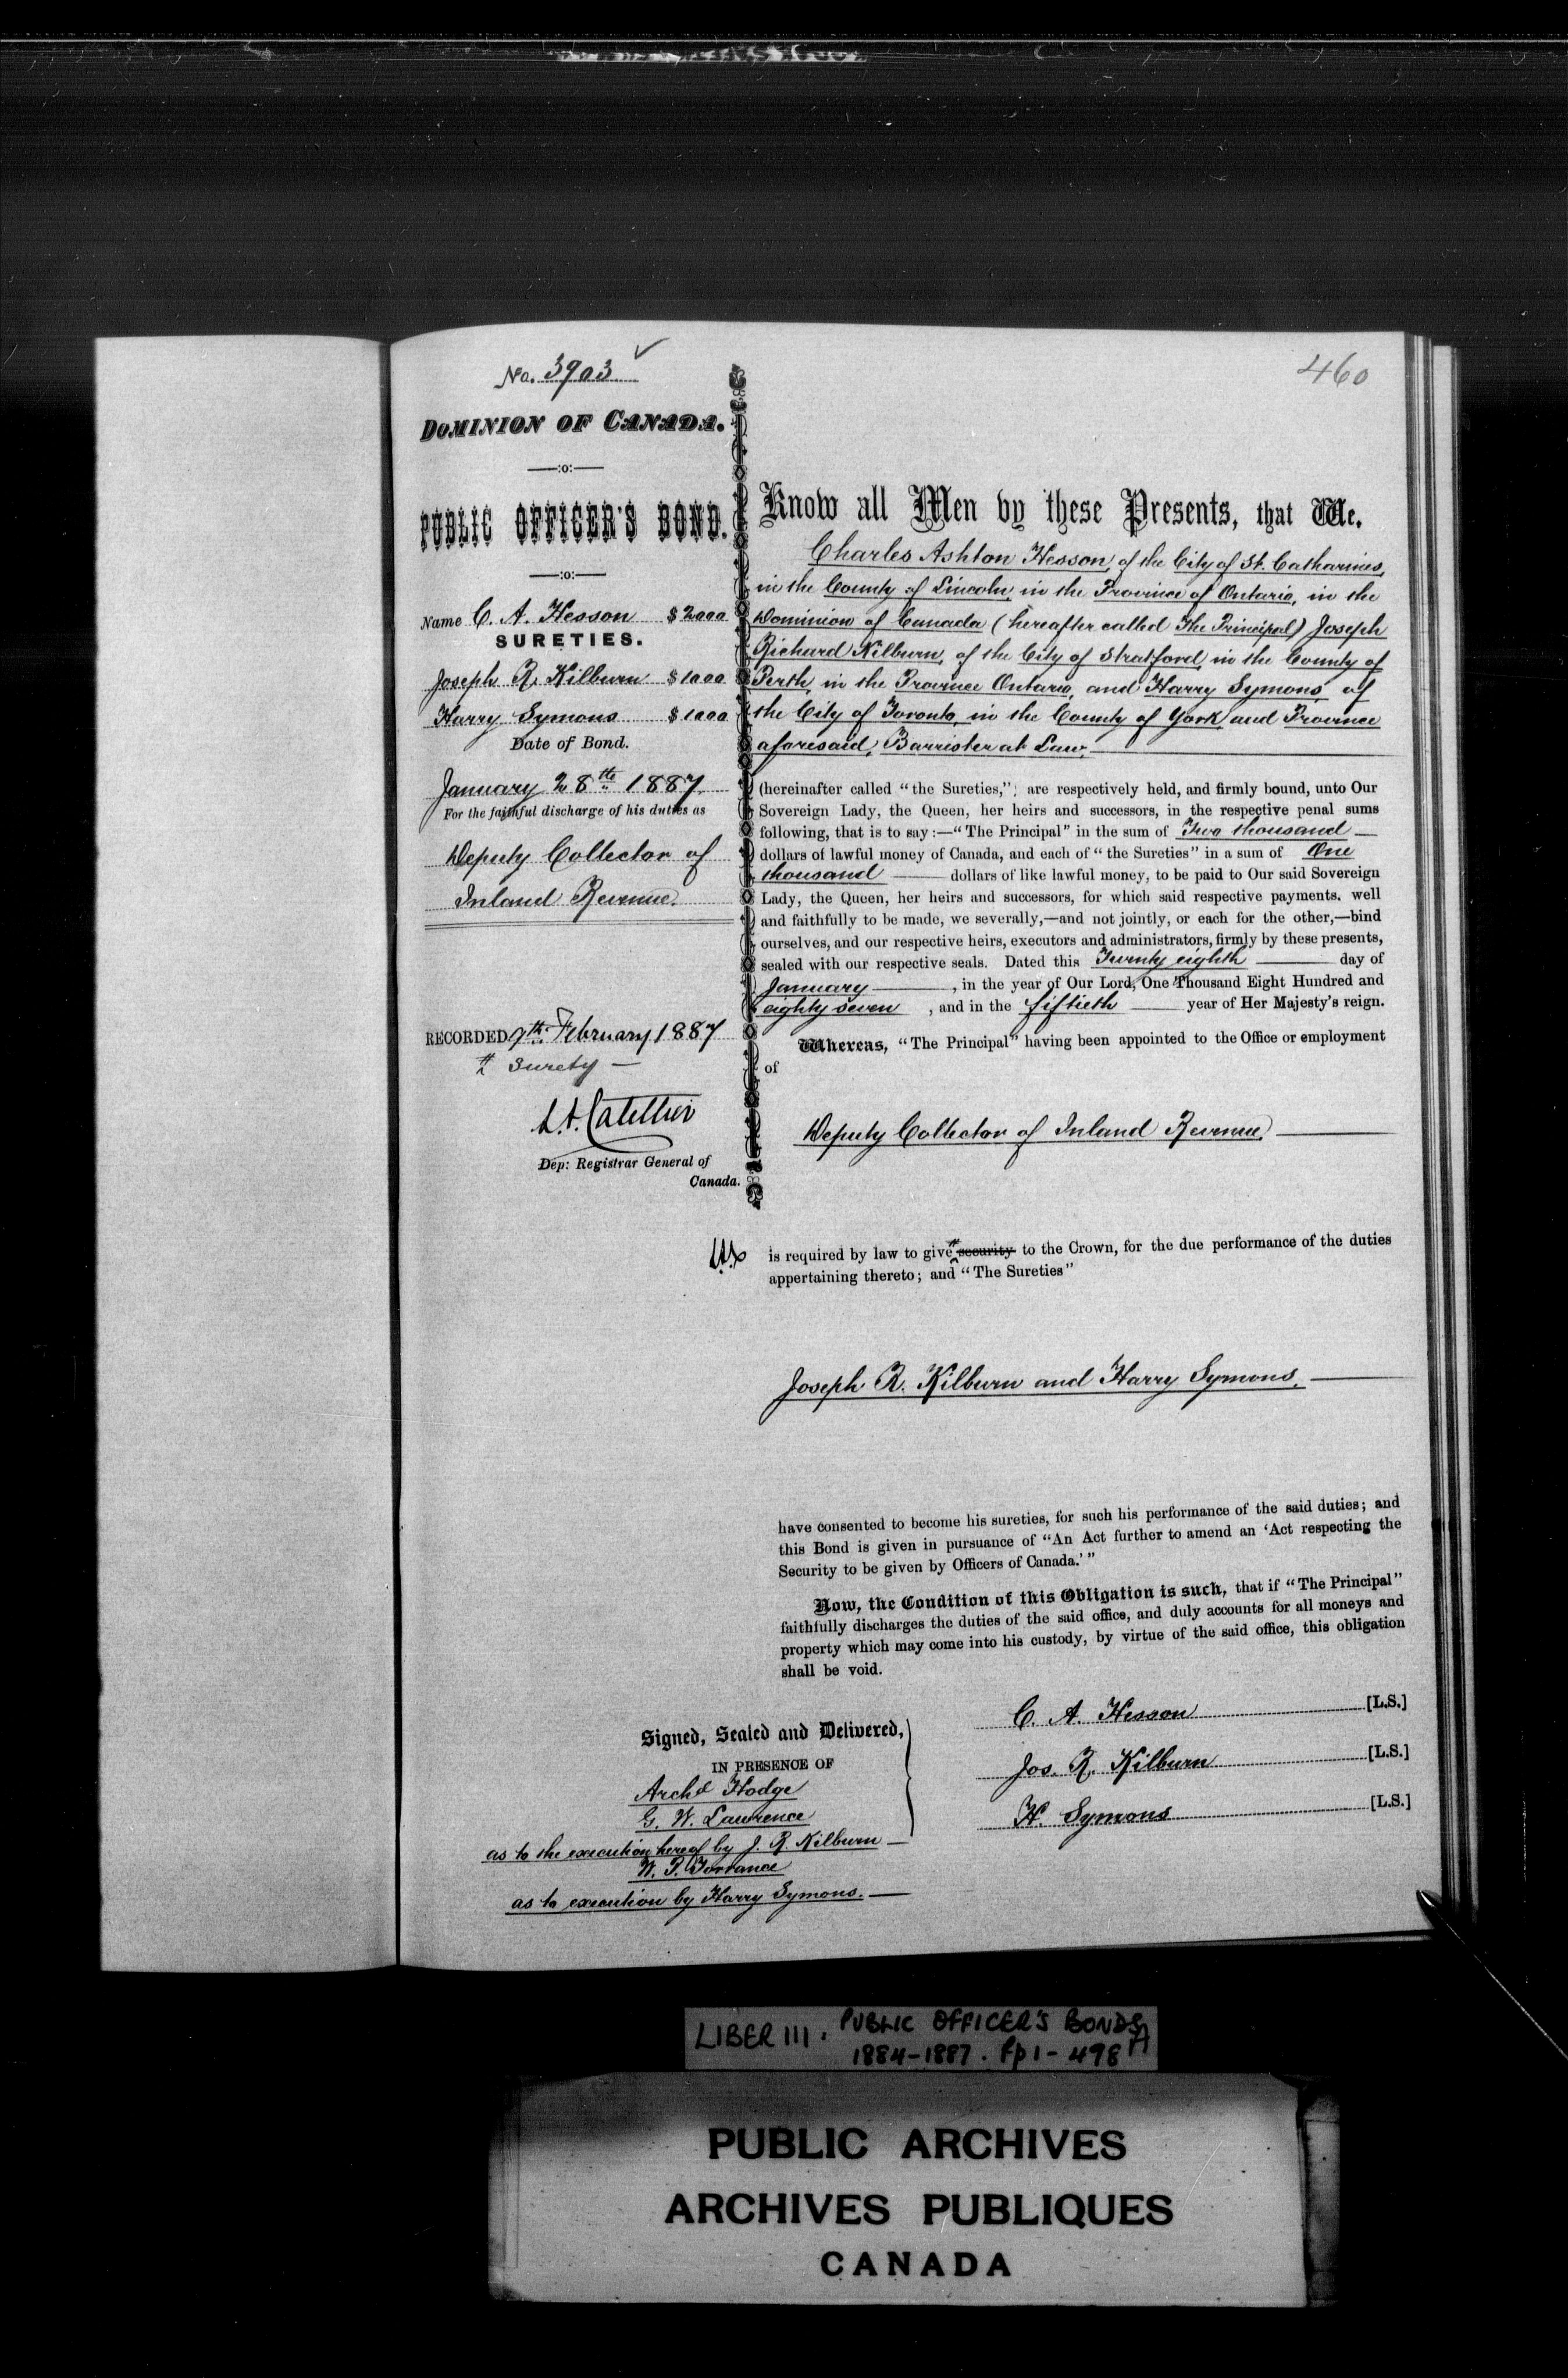 No. 3903 ✓
460
DOMINION OF CANADA.
—:o:—
PUBLIC OFFICER'S BOND.
—:o:—
Name C. A. Hesson $2000
SURETIES.
Joseph R. Kilburn $1000
Harry Symons $1000
Date of Bond.
January 28th 1887
For the faithful discharge of his duties as
Deputy Collector of
Inland Revenue.
RECORDED 9th February 1887
# Surety —
L. A. Catellier
Dep: Registrar General of
Canada.
Know all Men by these Presents, that We.
Charles Ashton Hesson, of the City of St. Catharines,
in the County of Lincoln, in the Province of Ontario, in the
Dominion of Canada (hereafter called The Principal) Joseph
Richard Kilburn, of the City of Stratford, in the County of
Perth, in the Province Ontario, and Harry Symons, of
the City of Toronto, in the County of York, and Province
aforesaid, Barrister at Law,
(hereinafter called "the Sureties,"; are respectively held, and firmly bound, unto Our
Sovereign Lady, the Queen, her heirs and successors, in the respective penal sums
following, that is to say:—"The Principal" in the sum of Two thousand —
dollars of lawful money of Canada, and each of "the Sureties" in a sum of One
thousand — dollars of like lawful money, to be paid to Our said Sovereign
Lady, the Queen, her heirs and successors, for which said respective payments. well
and faithfully to be made, we severally,—and not jointly, or each for the other,—bind
ourselves, and our respective heirs, executors and administrators, firmly by these presents,
sealed with our respective seals. Dated this Twenty eighth — day of
January —, in the year of Our Lord, One Thousand Eight Hundred and
eighty seven, and in the fiftieth — year of Her Majesty's reign.
Whereas, "The Principal" having been appointed to the Office or employment
of
Deputy Collector of Inland Revenue, —
is required by law to give # security to the Crown, for the due performance of the duties
appertaining thereto; and "The Sureties"
Joseph R. Kilburn and Harry Symons. —
have consented to become his sureties, for such his performance of the said duties; and
this Bond is given in pursuance of "An Act further to amend an 'Act respecting the
Security to be given by Officers of Canada.'"
Now, the Condition of this Obligation is such, that if "The Principal"
faithfully discharges the duties of the said office, and duly accounts for all moneys and
property which may come into his custody, by virtue of the said office, this obligation
shall be void.
Signed, Sealed and Delivered,
IN PRESENCE OF
Archd Hodge
G. W. Lawrence
as to the execution hereof by J. R. Kilburn —
W. P. Torrance
as to execution by Harry Symons. —
C. A. Hesson [L.S.]
Jos. R. Kilburn [L.S.]
H. Symons [L.S.]
LIBER 111. PUBLIC OFFICER'S BONDS
1884-1887. fp 1- 498A
PUBLIC ARCHIVES
ARCHIVES PUBLIQUES
CANADA